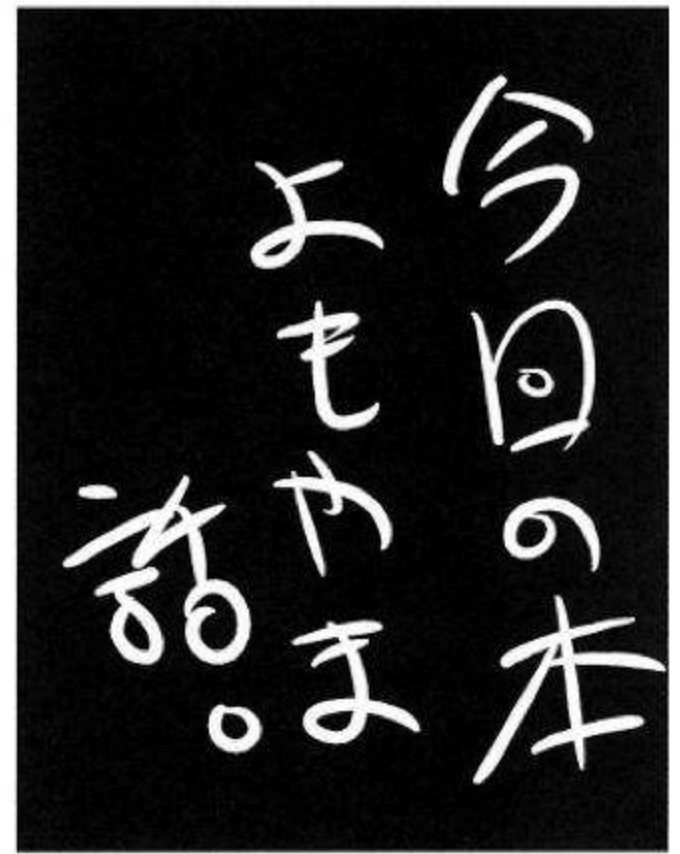 今日の本
よもやま
話。